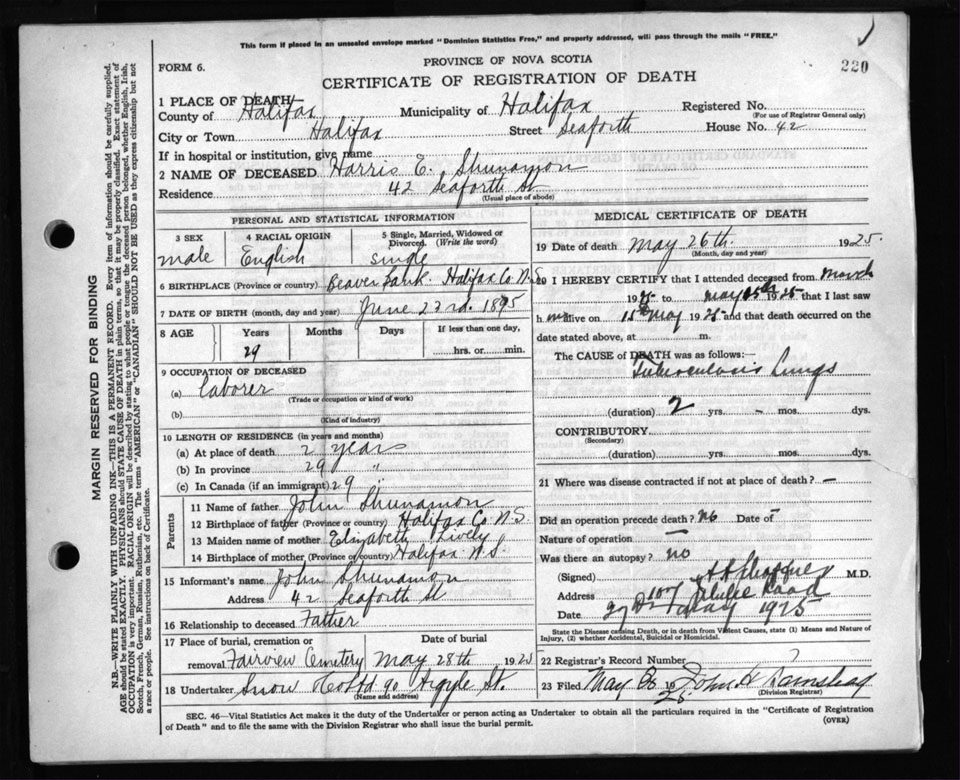 This form if placed in an unsealed envelope marked "Dominion Statistics Free," and property addressed, will pass through the mails "FREE."
220
PROVINCE OF NOVA SCOTIA
FORM 6.
CERTIFICATE OF REGISTRATION OF DEATH
1 PLACE OF DEATH
County of Halifax Municipality of Halifax Registered No.
(For use of Registrar General only)
City or Town Halifax Street Seaforth House No. 42
If in hospital or institution, give name
2 NAME OF DECEASED Harris E. Shunamon
Residence 42 Seaforth St
(Usual place of abode)
PERSONAL AND STATISTICAL INFORMATION
3 SEX 4 RACIAL ORIGIN 5 Single, Married, Widowed or Divorced. (Write the word)
male English single
6 BIRTHPLACE (Province or country) Beaver Bank. Halifax Co N.S
7 DATE OF BIRTH (month, day and year) June 23rd. 1895
8 AGE Years Months Days If less than one day,
29 hrs. or min.
9 OCCUPATION OF DECEASED
(a) Laborer
(Trade or occupation or kind of work)
(b)
(Kind of industry)
10 LENGTH OF RESIDENCE (in years and months)
(a) At place of death 2 years
(b) In province 29 "
(c) In Canada (if an immigrant) 29
Parents
11 Name of father John Shunamon
12 Birthplace of father (Province or country) Halifax Co N.S.
13 Maiden name of mother Elizabeth Lively
14 Birthplace of mother (Province or country) Halifax N.S.
15 Informant's name John Shunamon
Address 42 Seaforth St
16 Relationship to deceased Father
17 Place of burial, cremation or Date of burial
removal Fairview Cemetery May 28th 1925
18 Undertaker Snow & Co Ltd 90 Argyle St.
(Name and address)
MEDICAL CERTIFICATE OF DEATH
19 Date of death May 26th. 1925.
(Month, day and year)
20 I HEREBY CERTIFY that I attended deceased from March
1925 to May 25th 1925 that I last saw
him alive on 15th May 1925 and that death occurred on the
date stated above, at m.
The CAUSE OF DEATH was as follows:—
Tuberculosis Lungs
(duration) 2 yrs. – mos. dys.
CONTRIBUTORY
(Secondary)
(duration) yrs. mos. dys.
21 Where was disease contracted if not at place of death? –
Did an operation precede death? no Date of –
Nature of operation –
Was there an autopsy? no
(Signed) M.D.
Address 107 Road
Date 27th May 1925
State the Disease causing Death, or in death from Violent Causes, state (1) Means and Nature of Injury, (2) whether Accidental, Suicidal or Homicidal.
22 Registrar's Record Number
23 Filed May 1925 John H Barnstead
(Division Registrar)
SEC. 46—Vital Statistics Act makes it the duty of the Undertaker or person acting as Undertaker to obtain all the particulars required in the "Certificate of Registration of Death" and to file the same with the Division Registrar who shall issue the burial permit.
(OVER)
MARGIN RESERVED FOR BINDING
N.B.—WRITE PLAINLY WITH UNFADING INK—THIS IS A PERMANENT RECORD. Every item of information should be carefully supplied.
AGE should be stated EXACTLY. PHYSICIANS should STATE CAUSE OF DEATH in plain terms, so that it may be properly classified. Exact statement of
OCCUPATION is very important. RACIAL ORIGIN will be described by stating to what people or tongue the deceased person belonged, whether English, Irish,
Scotch, French, German, Russian, Ruthenian, etc. The terms "AMERICAN" or "CANADIAN" SHOULD NOT BE USED as they express citizenship but not
a race or people. See instructions on back of Certificate.